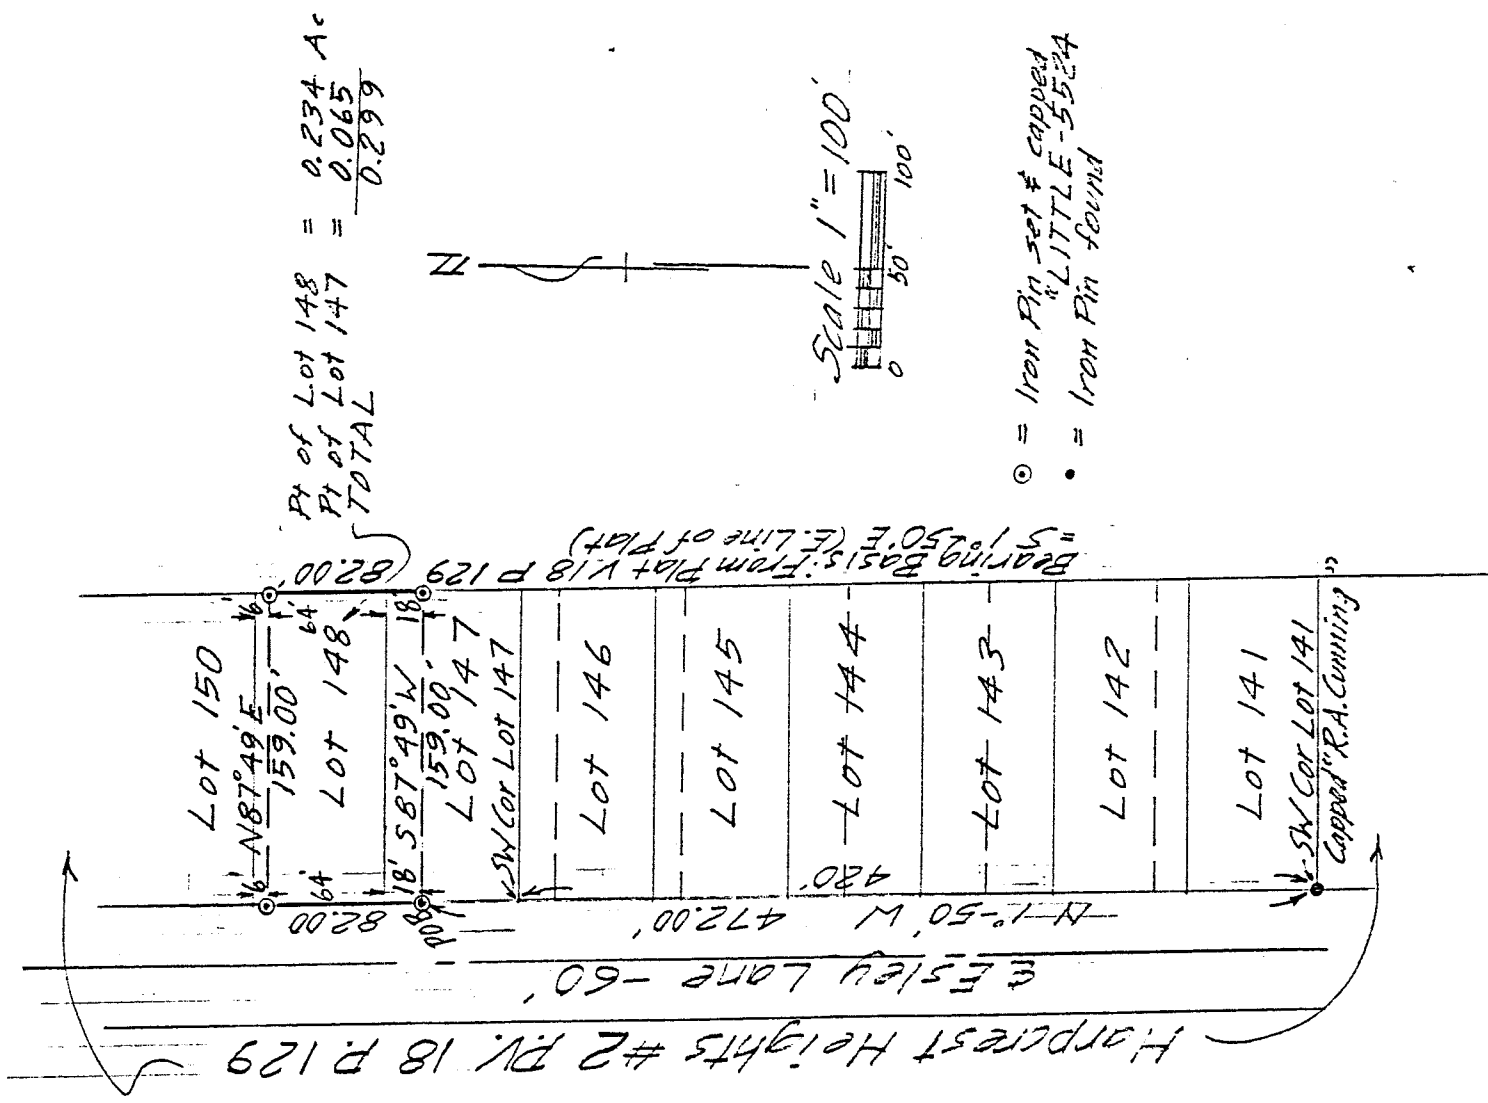 Pt of Lot 148 = 0.234 Ac
Pt of Lot 147 = 0.065
TOTAL 0.299
N
Scale 1"=100'
0 50' 100'
⊙ = Iron Pin set & capped
"LITTLE-5524
• = Iron Pin found
Bearing Basis: From Plat V.18 P 129
= S 1°250'E (E. Line of Plat)
82.00'
Lot 150
6' N87°49'E 6'
159.00'
64' 64'
Lot 148
18' S87°49'W 18'
159.00'
Lot 147
SW Cor Lot 147
Lot 146
Lot 145
Lot 144
Lot 143
Lot 142
Lot 141
SW Cor Lot 141
Capped "R.A. Cunning"
82.00
POB
420'
N-1°-50'W 472.00'
℄ Esley Lane -60'
Harpcrest Heights #2 P.V. 18 P. 129